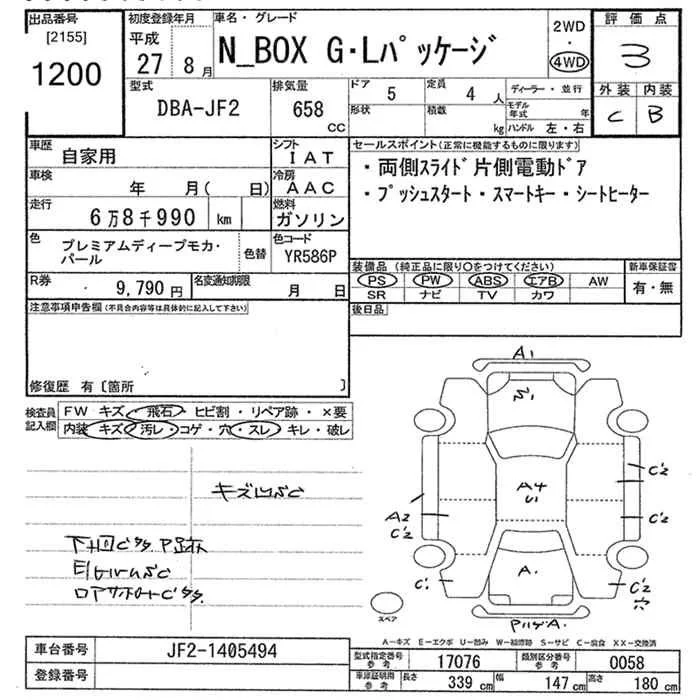 出品番号
[2155]
1200
初度登録年月
平成
27 8月
車名・グレード
N_BOX G・Lパッケージ
2WD
・
4WD
評価点
3
外装 内装
C B
型式
DBA-JF2
排気量
658
CC
ドア 5
定員 4 人
形状
積載 kg
ディーラー・並行
モデル年式 年
ハンドル 左・右
車歴
自家用
シフト
IAT
車検
年 月( 日)
冷房
AAC
走行
6万8千990 km
燃料
ガソリン
色
プレミアムディープモカ・
パール
色替
色コード
YR586P
R券
9,790円
名変通知期限
月 日
セールスポイント(正常に機能するものに限ります)
・両側スライド片側電動ドア
・プッシュスタート・スマートキー・シートヒーター
装備品(純正品に限り○をつけてください)
PS PW ABS エアB AW
SR ナビ TV カワ
新車保証書
有・無
後日品
注意事項申告欄(不具合内容等は具体的に記入して下さい)
修復歴 有〔箇所 〕
検査員
記入欄
FW キズ・飛石・ヒビ割・リペア跡・×要
内装 キズ・汚レ・コゲ・穴・スレ・キレ・破レ
A1
A4
U1
C2
C2
A2
C2
C1
A1
C2
穴
スペア
A－キズ E－エクボ U－凹み W－補修跡 S－サビ C－腐食 XX－交換済
車台番号
JF2-1405494
登録番号
型式指定番号
参考
17076
類別区分番号
参考
0058
車庫証明用
参考
長さ 339 cm
幅 147 cm
高さ 180 cm